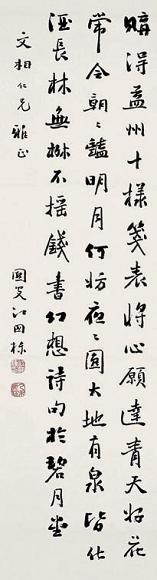 得益州十樣箋表將心願達青天好花
常令朝〻豔明月何妨夜〻圓大地有泉皆化
酒長林無樹不搖錢書幻想詩句於碧月堂
文相仁兄雅正
江國棟